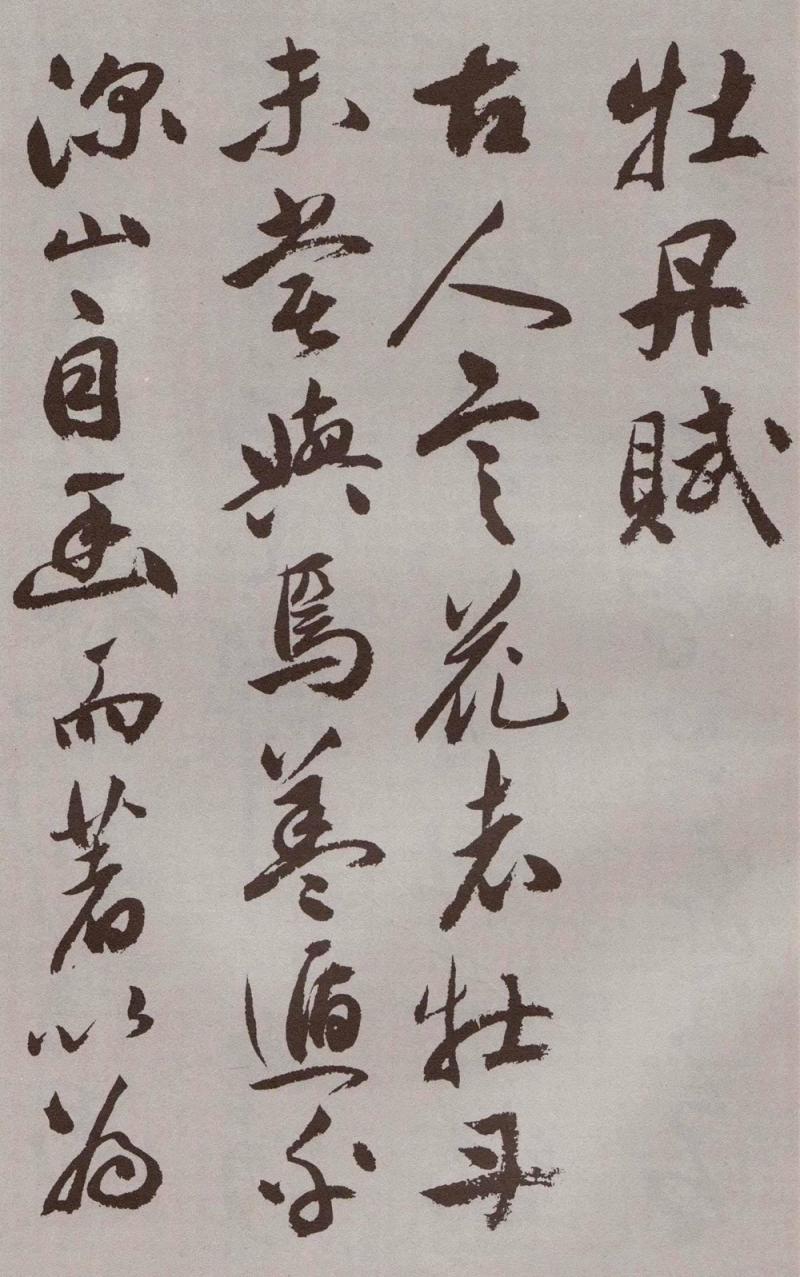 牡丹賦
古人言花者牡丹
未嘗與焉盖遁乎
深山自幽而著以為